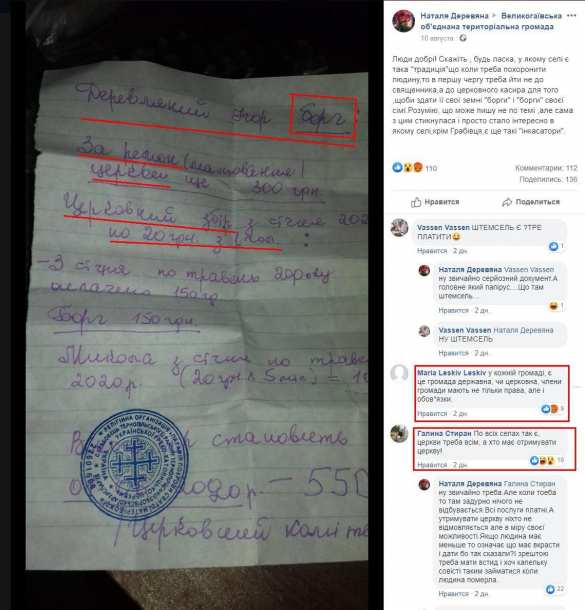 Деревляний Ігор Борг
За ремонт (малювання)
церкви ще 300 грн
Церковний збір з січня 202
по 20 грн. з
- З січня по травень 20 року
оплачено 150
Борг 150 грн.
Микола з січня по траве
2020р. (20грн × 5
становить
550
Церковний коміте
Наталя Деревяна ▸ Великогаївська
об'єднана територіальна громада
10 августа
Люди добрі! Скажіть , будь ласка, у якому селі є
така "традиція"що коли треба похоронити
людину,то в першу чергу треба йти не до
священника,а до церковного касира для того
,щоби здати її свої земні "борги" і "борги" своєї
сімї.Розумію, що може пишу не по темі ,але сама
з цим стикнулася і просто стало інтересно в
якому селі,крім Грабівця,є ще такі "інкасатори".
110
Комментарии: 112
Поделились: 136
Нравится
Поделиться
Vassen Vassen ШТЕМСЕЛЬ Є ?ТРЕ
ПЛАТИТИ
1
Нравится · 2 дн.
Наталя Деревяна Vassen Vassen
ну звичайно серйозний документ.А
головне який папірус....Що там
штемсель...
1
Нравится · 2 дн.
Vassen Vassen Наталя Деревяна
НУ ШТЕМСЕЛЬ
Нравится · 2 дн.
Maria Leskiv Leskiv у кожній громаді, є
це громада державна, чи церковна, члени
громади мають не тільки права, але і
обов"язки.
9
Нравится · 2 дн.
Галина Стиран По всіх селах так є,
церкви треба всім, а хто має отримувати
церкву!
18
Нравится · 2 дн.
Наталя Деревяна Галина Стиран
ну звичайно треба.Але коли тоеба
то там задурно нічого не
відбувається.Всі послуги платні.А
утримувати церкву ніхто не
відмовляється але в міру своєї
можливості.Якщо людина має
меньше то означає що має вкрасти
и дати бо так сказали?І зрештою
треба мати встид і хоч капельку
совісті таким займатися коли
людина померла.
22
Нравится · 2 дн.